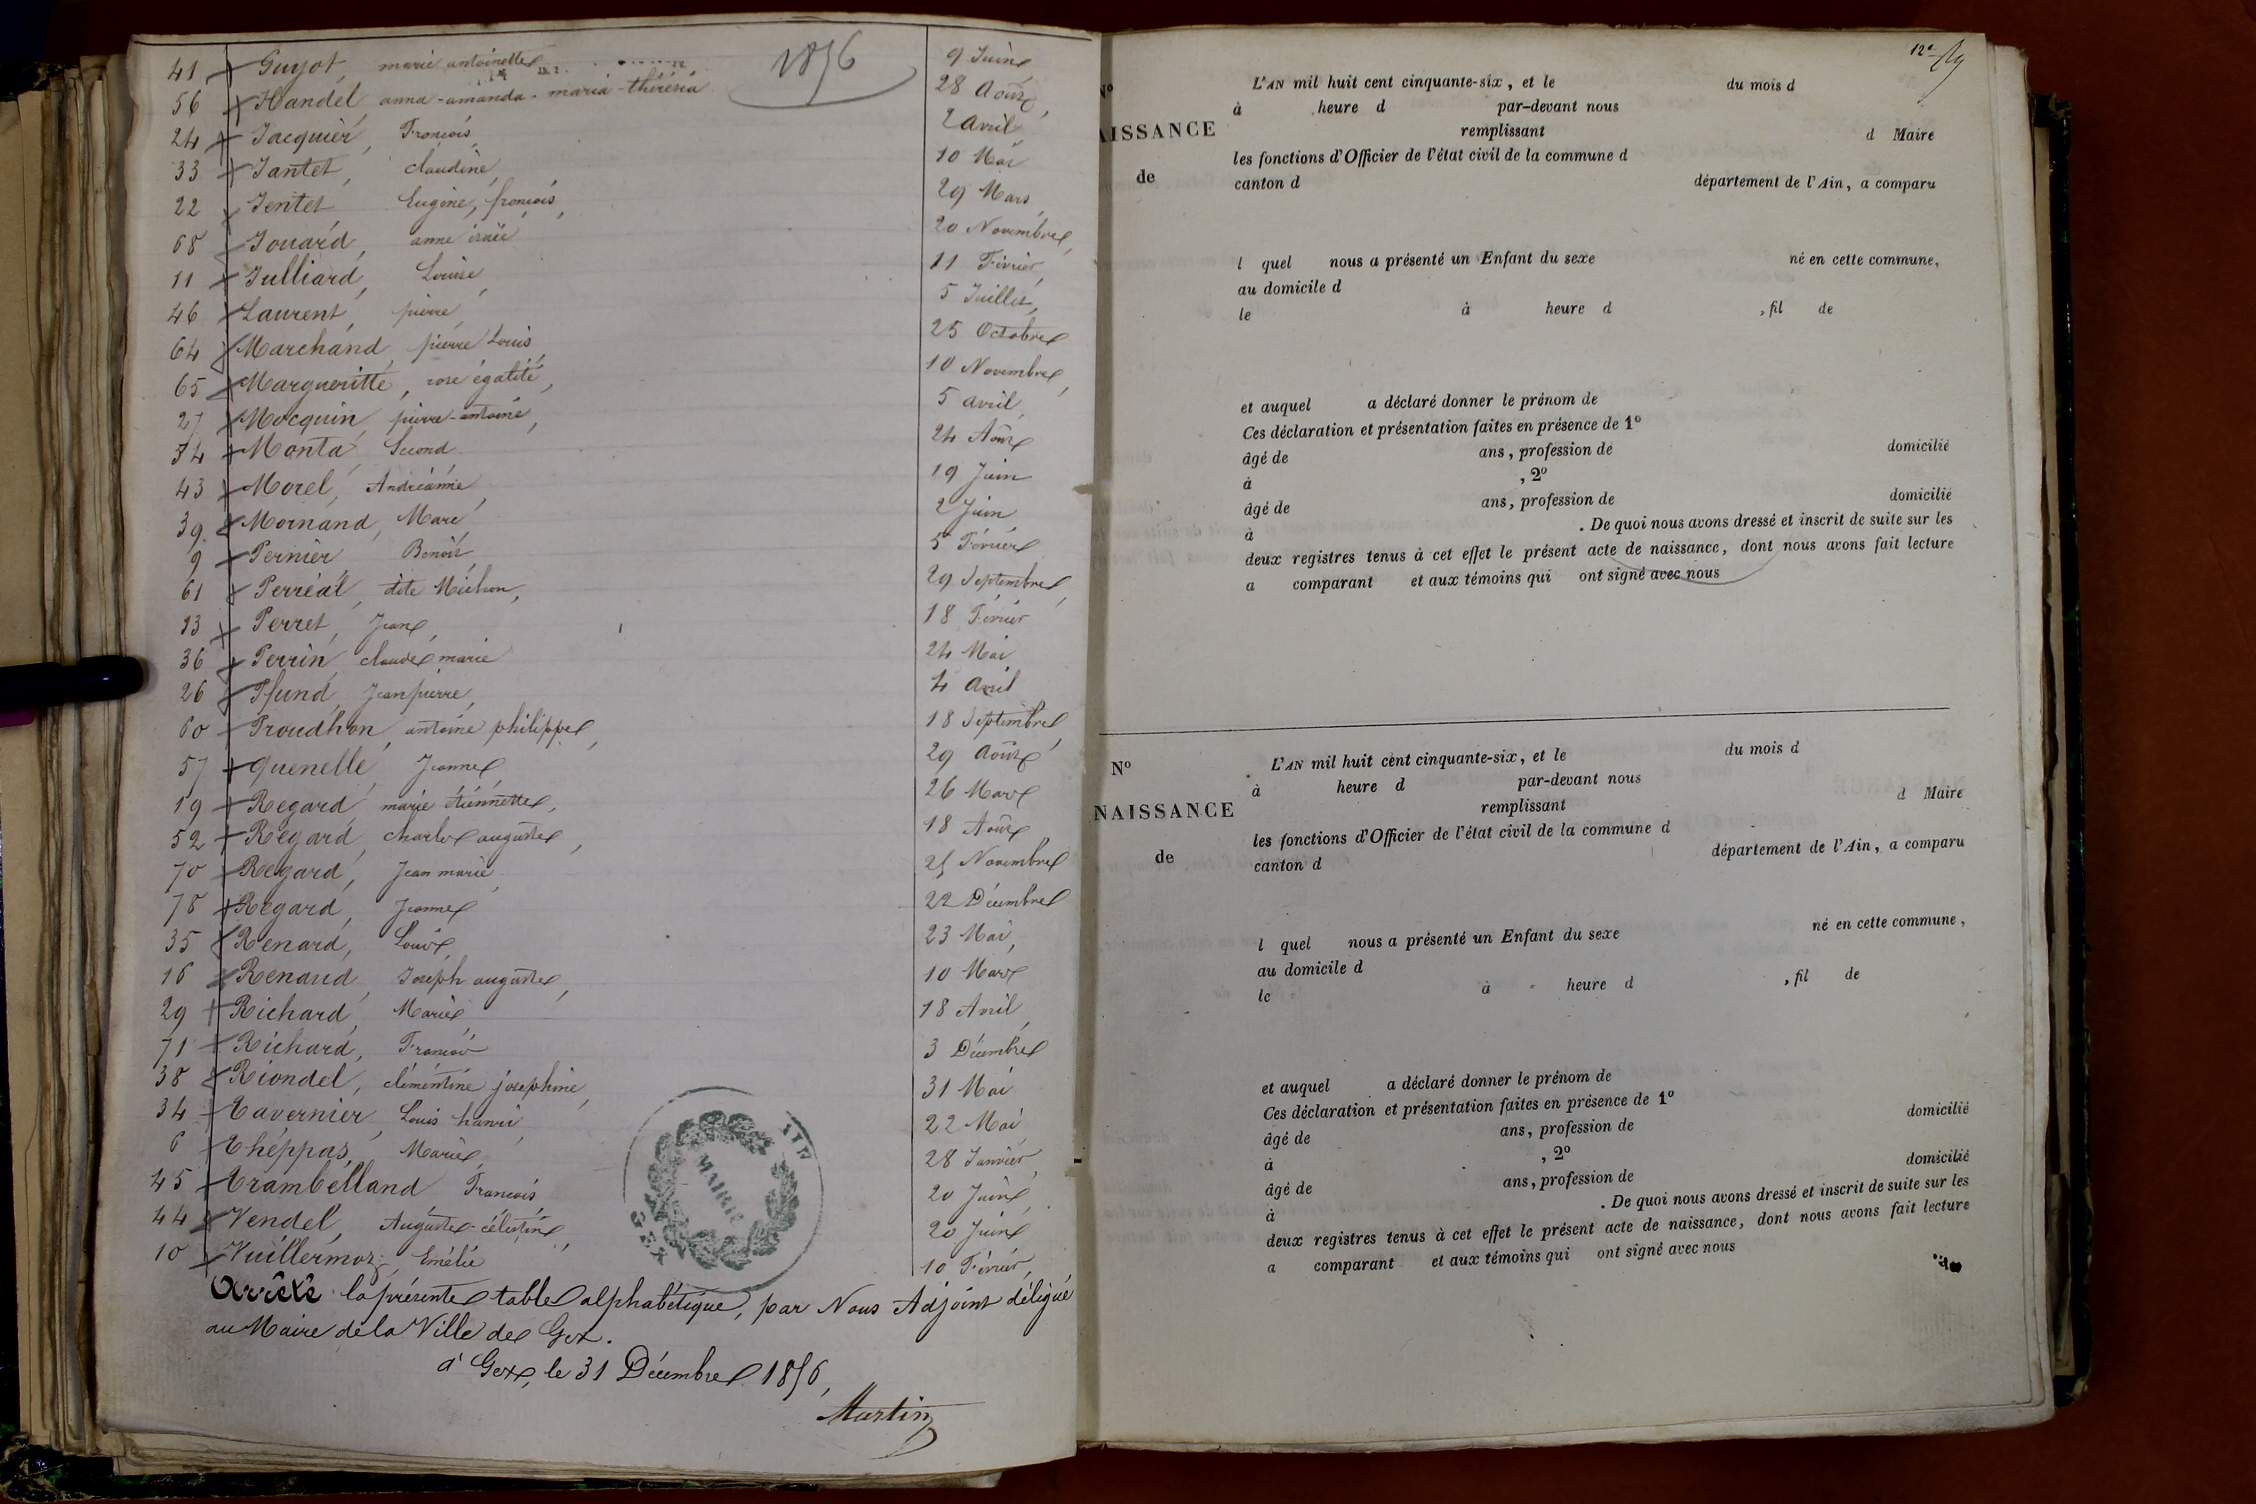 1856
41 Guyot, marie antoinette 9 Juin
56 Handel anna-amanda-maria-thérésia 28 Août,
24 Jacquier, François, 2 avril
33 Jantet, claudine, 10 Mai
22 Jentet Eugène, françois, 29 Mars,
68 Jouard, anne 20 Novembre,
11 Julliard, Louise, 11 Février,
46 Laurent, pierre, 5 Juillet,
64 Marchand, pierre Louis, 25 Octobre
65 Margueritte, rose égalité, 10 Novembre,
27 Mocquin, pierre-antoine, 5 avril,
54 Monta, Second 24 Août
43 Morel, Andréanne, 19 Juin
39 Mornand, Marc 2 Juin
9 Pernier, Benoit, 5 Février
61 Perréal, dite Michon, 29 Septembre,
13 Perret, Jean, 18 Février
36 Perrin, claude marie 24 Mai
26 Pfund, Jean pierre, 4 Avril
60 Proudhon, antoine philippe, 18 Septembre,
57 Quenelle, Jeanne, 29 Août
19 Regard, marie étiennette, 26 Mars
52 Regard, charles auguste, 18 Août,
70 Regard, Jean marie, 25 Novembre
78 Regard, Jeanne 22 Décembre
35 Renard, Louis, 23 Mai,
16 Renaud, Joseph auguste, 10 Mars
29 Richard, Marie, 18 Avril,
71 Richard, François 3 Décembre
38 Riondel, clémentine joséphine, 31 Mai
34 Tavernier, Louis henri, 22 Mai
6 Théppas, Marie, 28 Janvier,
45 Trambelland François 20 Juin,
44 Vendel, Auguste-célestine, 20 Juin
10 Vuillermoz, Emélie 10 Février,
MAIRIE
GEX
AIN
Arrêté la présente table alphabétique, par Nous Adjoint délégué
au Maire de la Ville de Gex.
à Gex, le 31 Décembre 1856,
Martin
12e
No
L'AN mil huit cent cinquante-six, et le du mois d
à heure d par-devant nous
AISSANCE
remplissant d Maire
les fonctions d'Officier de l'état civil de la commune d
de
canton d département de l'Ain, a comparu
l quel nous a présenté un Enfant du sexe né en cette commune,
au domicile d
le à heure d , fil de
et auquel a déclaré donner le prénom de
Ces déclaration et présentation faites en présence de 1o
âgé de ans, profession de domicilié
à , 2o
âgé de ans, profession de domicilié
à . De quoi nous avons dressé et inscrit de suite sur les
deux registres tenus à cet effet le présent acte de naissance, dont nous avons fait lecture
a comparant et aux témoins qui ont signé avec nous
No
L'AN mil huit cent cinquante-six, et le du mois d
à heure d par-devant nous
NAISSANCE
remplissant d Maire
les fonctions d'Officier de l'état civil de la commune d
de
canton d département de l'Ain, a comparu
l quel nous a présenté un Enfant du sexe né en cette commune,
au domicile d
le à heure d , fil de
et auquel a déclaré donner le prénom de
Ces déclaration et présentation faites en présence de 1o
âgé de ans, profession de domicilié
à , 2o
âgé de ans, profession de domicilié
à . De quoi nous avons dressé et inscrit de suite sur les
deux registres tenus à cet effet le présent acte de naissance, dont nous avons fait lecture
a comparant et aux témoins qui ont signé avec nous